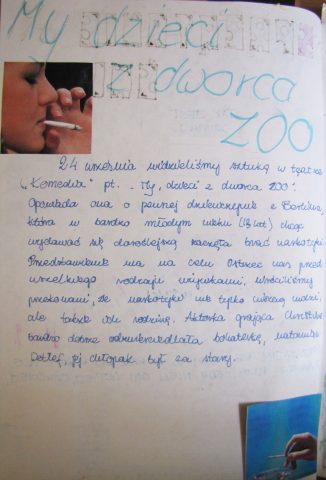 My dzieci
z dworca
ZOO
24 września widzieliśmy sztukę w teatrze
"Komedia" pt. "My, dzieci z dworca ZOO".
Opowiada ona o pewnej dziewczynie z Berlina
która w bardzo młodym wieku (13 lat) chcąc
wydawać się doroślejszą zaczęła brać narkotyki
Przedstawienie ma na celu ostrzec nas przed
wszelkiego rodzaju używkami, wróciliśmy
przekonani, że narkotyki nie tylko niszczą ludzi,
ale także ich rodzinę. Aktorka grająca Christine
bardzo dobrze odzwierciedlała bohaterkę, natomiast
Detlef, jej chłopak był za stary.